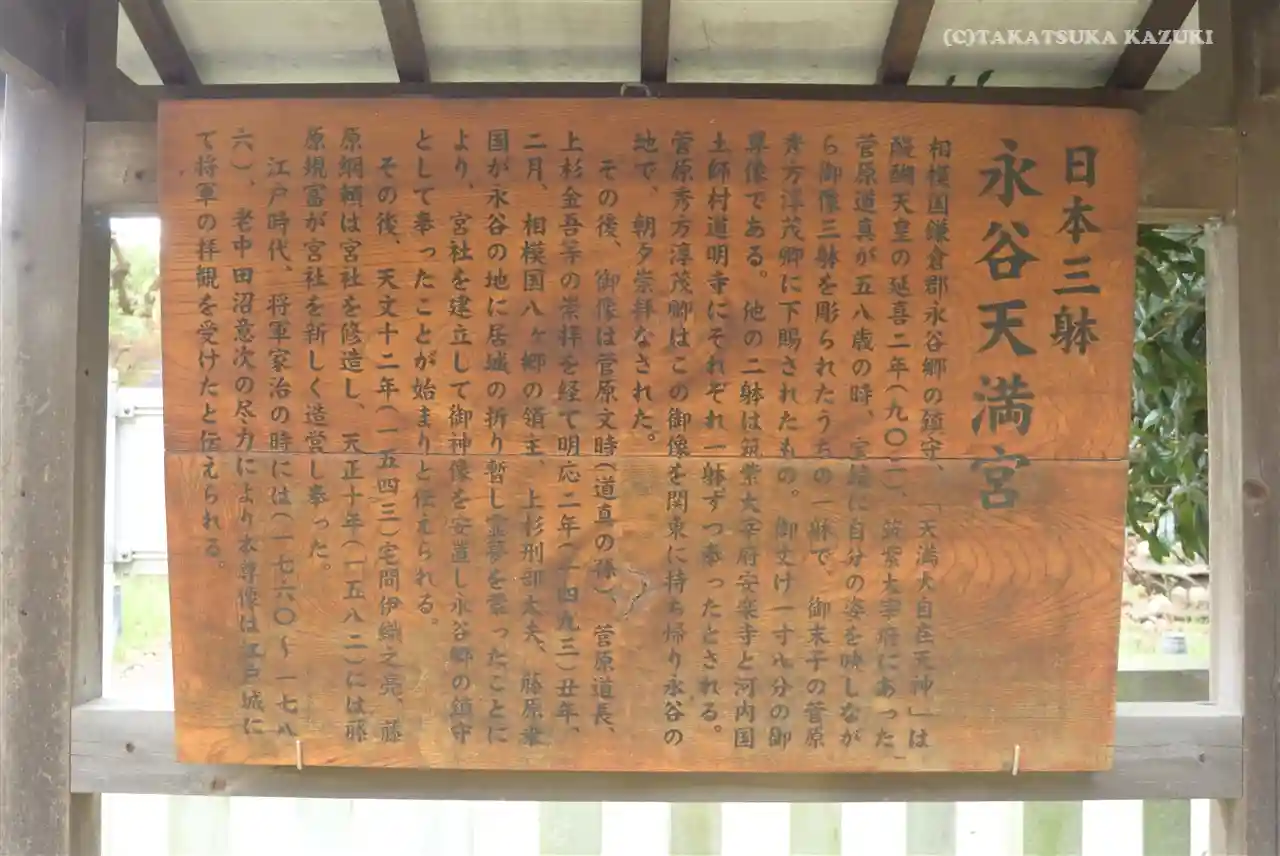 (C)TAKATSUKA KAZUKI
日本三躰
永谷天満宮
相模国鎌倉郡永谷郷の鎮守、「天満大自在天神」は
醍醐天皇の延喜二年(九〇二)、筑紫大宰府にあった
菅原道真が五八歳の時、宝鏡に自分の姿を映しなが
ら御像三躰を彫られたうちの一躰で、御末子の菅原
秀方淳茂卿に下賜されたもの。御丈け一寸八分の御
畀像である。他の二躰は筑紫大宰府安楽寺と河内国
土師村道明寺にそれぞれ一躰ずつ奉ったとされる。
菅原秀方淳茂卿はこの御像を関東に持ち帰り永谷の
地で、朝夕崇拝なされた。
その後、御像は菅原文時(道真の孫)、菅原道長、
上杉金吾等の崇拝を経て明応二年(一四九三)丑年、
二月、相模国八ヶ郷の領主、上杉刑部太夫、藤原乗
国が永谷の地に居城の折り暫し霊夢を蒙ったことに
より、宮社を建立して御神像を安置し永谷郷の鎮守
として奉ったことが始まりと伝えられる。
その後、天文十二年(一五四三)宅間伊織之亮、藤
原綱頼は宮社を修造し、天正十年(一五八二)には藤
原規富が宮社を新しく造営し奉った。
江戸時代、将軍家治の時には(一七六〇〜一七八
六)、老中田沼意次の尽力により本尊像は江戸城に
て将軍の拝観を受けたと伝えられる。